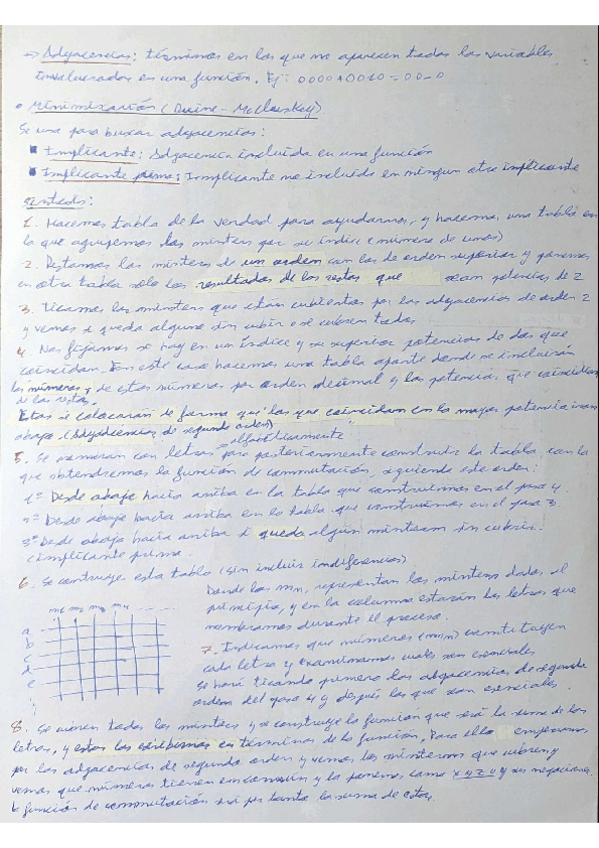 → Adyacencias: términos en los que no aparecen todas las variables
involucradas en una función. Ej: 0000 + 0010 = 00_0
• Minimización (Quine - McCluskey)
Se usa para buscar adyacencias:
▪ Implicante: Adyacencia incluida en una función
▪ Implicante primo: Implicante no incluido en ningun otro implicante
1. Hacemos tabla de la verdad para ayudarnos, y hacemos una tabla en
la que agrupemos los minterms por su índice (número de unos)
2. Restamos los minterms de un orden con los de orden superior y ponemos
en otra tabla solo los resultados de las restas que sean potencias de 2
3. Ticamos los minterms que están cubiertos por las adyacencias de orden 2
y vemos si queda alguno sin cubrir o se cubren todos
4. Nos fijamos si hay en un índice y su superior potencias de dos que
coincidan. En este caso hacemos una tabla aparte donde se incluirán
los números y de estos números por orden decimal y las potencias que coinciden
de las restas.
Estas se colocarán de forma que las que coincidan con la mayor potencia irán
abajo (adyacencias de segundo orden)
5. Se nombran con letras "alfabéticamente" para posteriormente construir la tabla con la
que obtendremos la función de conmutación, siguiendo este orden:
1º Desde abajo hacia arriba en la tabla que construimos en el paso 4
2º Desde abajo hacia arriba en la tabla que construimos en el paso 3
3º Desde abajo hacia arriba si queda algún minterm sin cubrir
(implicante primo.
6. Se construye esta tabla (sin incluir indiferencias)
m₁ m₂ m₃ m₄ ....
a
b
c
d
e
Donde los mn, representan los minterms dados al
principio, y en la columna estarán las letras que
nombramos durante el proceso.
7. Indicamos que números (mn) constituyen
cada letra y examinamos cuales son esenciales
Se hará ticando primero las adyacencias de segundo
orden del paso 4 y después los que sean esenciales.
8. Se cubren todos los minterms y se construye la función que será la suma de las
letras, y estas las escribimos en términos de la función, Para ello empezamos
por las adyacencias de segundo orden y vemos los minterms que cubren y
vemos que números tienen en común y lo ponemos como x y z u y sus negaciones.
La función de conmutación será por tanto la suma de estas.